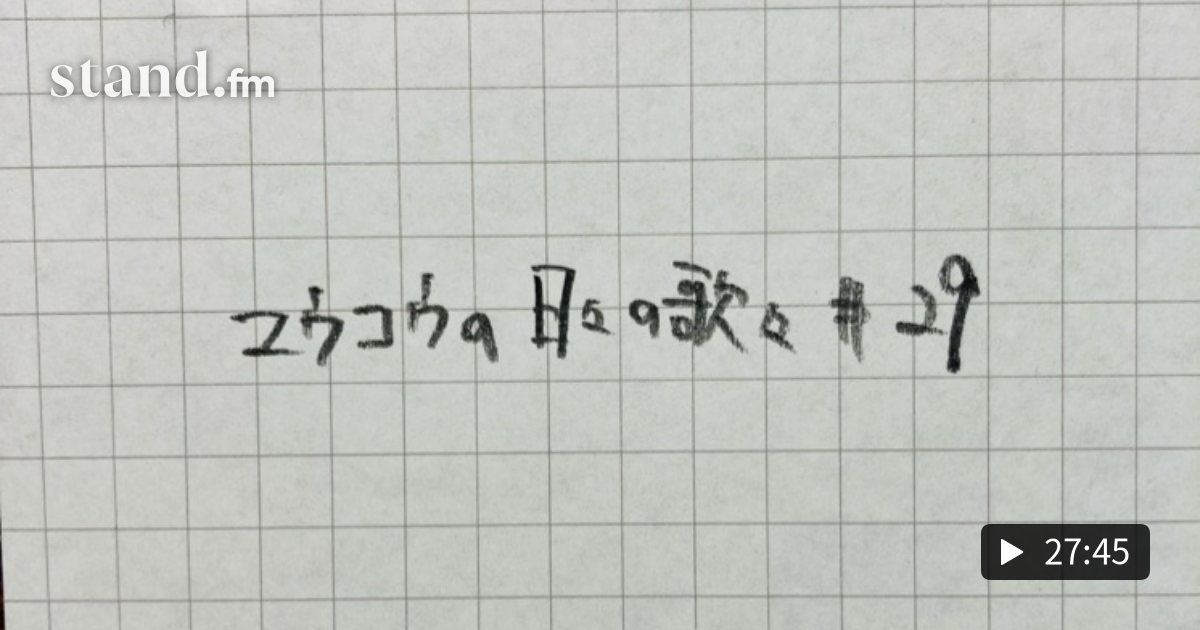 stand.fm
ユウコウの日々の歌々 #29
27:45